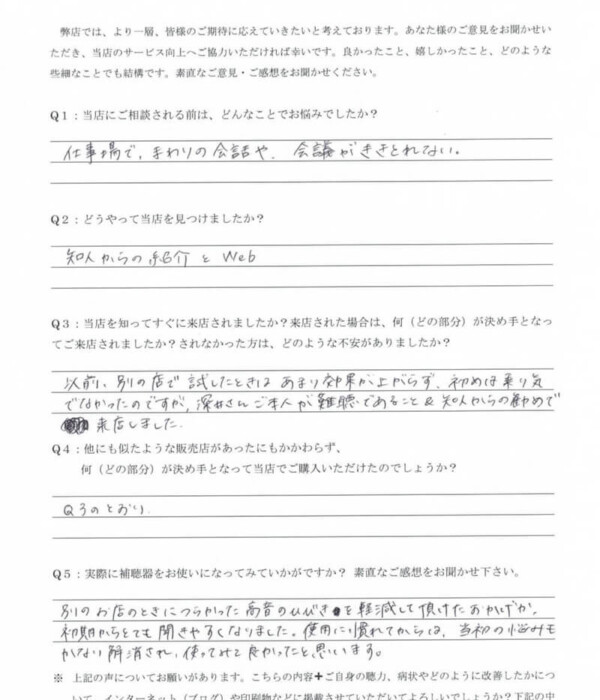 弊店では、より一層、皆様のご期待に応えていきたいと考えております。あなた様のご意見をお聞かせいた
だき、当店のサービス向上へご協力いただければ幸いです。良かったこと、嬉しかったこと、どのような
些細なことでも結構です。素直なご意見・ご感想をお聞かせください。
Q1：当店にご相談される前は、どんなことでお悩みでしたか？
仕事場で、まわりの会話や、会議がききとれない。
Q2：どうやって当店を見つけましたか？
知人からの紹介と Web
Q3：当店を知ってすぐに来店されましたか？来店された場合は、何（どの部分）が決め手となっ
てご来店されましたか？されなかった方は、どのような不安がありましたか？
以前、別の店で試したときはあまり効果が上がらず、初めは乗り気
でなかったのですが、深井さんご本人が難聴であること＆知人からの勧めで
来店しました。
Q4：他にも似たような販売店があったにもかかわらず、
何（どの部分）が決め手となって当店でご購入いただけたのでしょうか？
Q3のとおり
Q5：実際に補聴器をお使いになってみていかがですか？ 素直なご感想をお聞かせ下さい。
別のお店のときにつらかった高音のひびきを軽減して頂けたおかげか、
初期からとても聞きやすくなりました。使用に慣れてからは、当初の悩みも
かなり解消され、使ってみて良かったと思います。
※ 上記の声についてお願いがあります。こちらの内容＋ご自身の聴力、病状やどのように改善したかにつ
いて、インターネット（ブログ）や印刷物などに掲載させていただいてよろしいでしょうか？下記の中